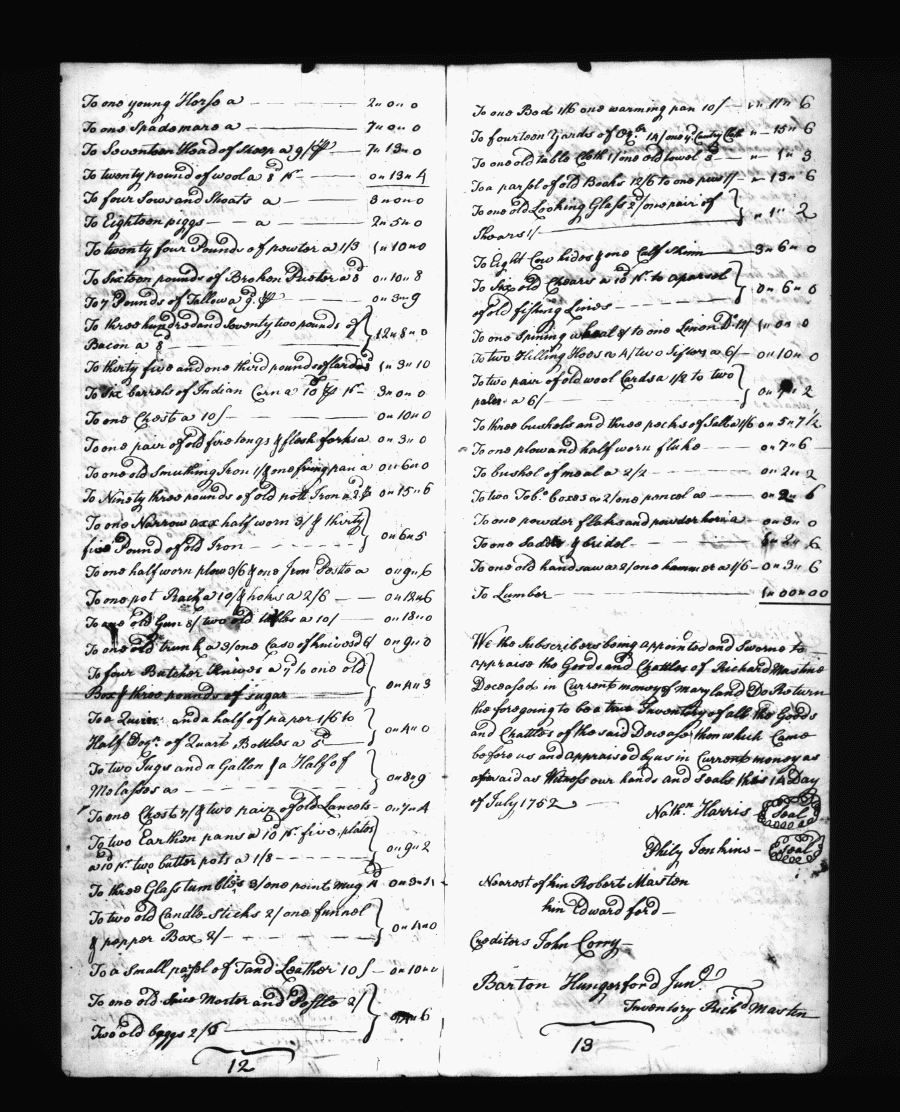 To one young Horse a 2 " 0 " 0
To one Spade mare a 7 " 0 " 0
To Seventeen Head of Sheep a 9/ 7 " 13 " 0
To twenty pound of wool a 8d pr 0 " 13 " 4
To four Sows and Shoats a 3 " 0 " 0
To Eighteen piggs a 2 " 5 " 0
To twenty four Pounds of pewter a 1/3 1 " 10 " 0
To Sixteen pounds of Broken Puter a 8d 0 " 10 " 8
To 7 Pounds of Tallow a 0 " 3 " 9
To three hundred and Seventy two pounds of
Bacon a 8d 12 " 8 " 0
To thirty five and one third pounds of lard a 1 " 3 " 10
To Six barrels of Indian Corn a 10/ pr 3 " 0 " 0
To one Chest a 10/ 0 " 10 " 0
To one pair of old fire tongs & flesh forks a 0 " 3 " 0
To one old Smuthing Iron 1/ & one fring pan a 0 " 6 " 0
To Ninety three pounds of old pott Iron a 2d 0 " 15 " 6
To one Narrow axx half worn 3/ & thirty
five Pound of old Iron 0 " 6 " 5
To one half worn plow 3/6 & one Iron Pestle a 0 " 9 " 6
To one pot Rack a 10/ & hoks a 2/6 0 " 12 " 6
To one old Gun 8/ two old tables a 10/ 0 " 18 " 0
To one old trunk a 3/ one Case of knives 6/ 0 " 9 " 0
To four Butcher Knives a to one old
Box & three pounds of sugar 0 " 4 " 3
To a Quire and a half of paper 1/6 to
Half Dogn of Quart Bottles a 5d 0 " 4 " 0
To two Jugs and a Gallon & a Half of
Molasses a 0 " 8 " 9
To one Chest 7/ & two pair of old Lancets 0 " 7 " 4
To two Earthen pans a 10d pr five plates
a 10d pr two butter pots a 1/8 0 " 9 " 2
To three Glass tumbles 3/ one point mug 0 " 3 "
To two old Candle Sticks 2/ one funnel
& pepper Box 2/ 0 " 4 " 0
To a Small parsel of Tand Leather 10/ 0 " 10 " 0
To one old Mortar and Pestle 2/
Two old baggs 2/6 6
12
To one Bed 1/6 one warming pan 10/ " 11 " 6
To fourteen Yards of 14/ one yd Cuntry Cloth " 15 " 6
To one old table Cloth 1/ one old towel 3d " 1 " 3
To a parsel of old Books 12/6 to one 1/ " 13 " 6
To one old Looking Glass 2d/ one pair of
Shears 1/ " 1 " 2
To Eight Cow hides & one Calf Skinn 3 " 6 " 0
To Six old Chears a 10d pr to a parsel
of old fishing Lines 0 " 6 " 0
To one Spining wheal 8/ to one Linen Do 12/ 1 " 0 " 0
To two Hilling Hoes a 4/ two Sifters a 6/ 0 " 10 " 0
To two pair of old wool Cards a 1/2 to two
pales a 6/ 0 " 7 " 2
To three bushels and three pecks of Salt a 1/6 0 " 5 " 7 1/2
To one plow and half worn fluke 0 " 7 " 6
To bushel of meal a 2/2 0 " 2 " 2
To two Tobo boxes a 2/ one pencel a 0 " 2 " 6
To one powder flak and powder horn a 0 " 3 " 0
To one Saddle & bridel 2 " 6
To one old handsaw a 2/ one hammer a 1/6 0 " 3 " 6
To Lumber 1 " 00 " 00
We the Subscribers being appointed and Sworne to
appraise the Goods and Chattles of Richard Mastine
Deceased in Current money of Maryland Do Return
the foregoing to be a true Inventory of all the Goods
and Chattles of the said Deceased then which Came
before us and appraised by us in Current money as
aforsaid as Witness our hands and Seals this 14 Day
of July 1752
Nathn Harris Seal
Philip Jenkins Seal
Nearest of kin Robert Masten
kin Edward ford
Creditors John Corry
Barton Hungerford Junr
Inventory Richd Masten
13